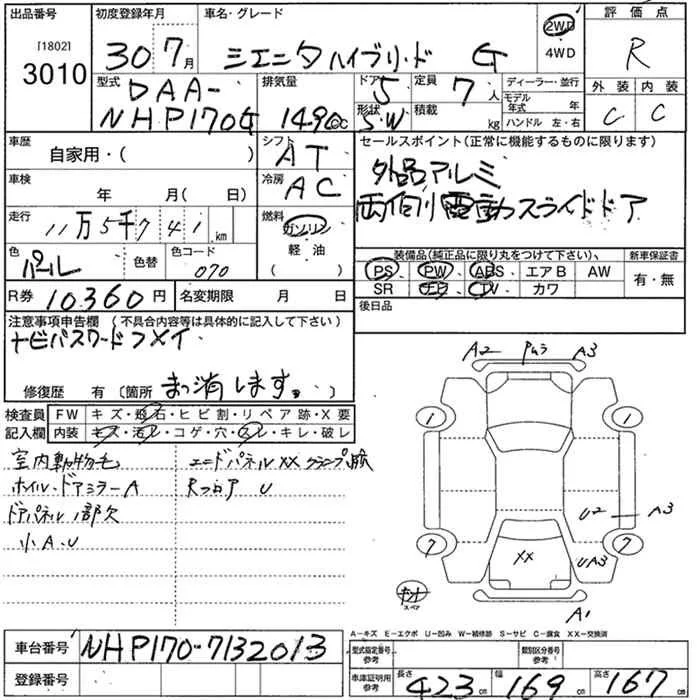 出品番号
[1802]
3010
初度登録年月
30年7月
車名・グレード
シエンタハイブリッド G
2WD
4WD
評価点
R
外装 内装
C C
型式
DAA-
NHP170G
排気量
1490cc
ドア 5
形状 S.W
定員 7人
積載 kg
ディーラー・並行
モデル年式 年
ハンドル 左・右
車歴
自家用・( )
シフト
AT
セールスポイント(正常に機能するものに限ります)
外品アルミ
両側電動スライドドア
車検
年 月( 日)
冷房
AC
走行
11万5千741km
燃料
ガソリン
軽油
( )
色
パール
色替
色コード
070
装備品(純正品に限り丸をつけて下さい)、
新車保証書
PS PW ABS エアB AW
SR TV カワ
有・無
R券 10360円
名変期限 月 日
後日品
注意事項申告欄 (不具合内容等は具体的に記入して下さい)
ナビパスワードフメイ
修復歴 有 〔箇所 まっ消します。 〕
検査員
記入欄
FW キズ・飛石・ヒビ割・リペア跡・X要
内装 キズ・汚レ・コゲ・穴・スレ・キレ・破レ
室内動物毛
ホイル・ドアミラーA
ドアパネル1部欠
小A.U
エンドパネルXX クランプ痕
Rフロア U
A2 Pムラ A3
1 1
U2 A3
7 7
XX
UA3
スペア
A1
A−キズ E−エクボ U−凹み W−補修跡 S−サビ C−腐食 XX−交換済
車台番号 NHP170-7132013
登録番号
型式指定番号
参考
類別区分番号
参考
車庫証明用
参考
長さ 423cm 幅 169cm 高さ 167cm